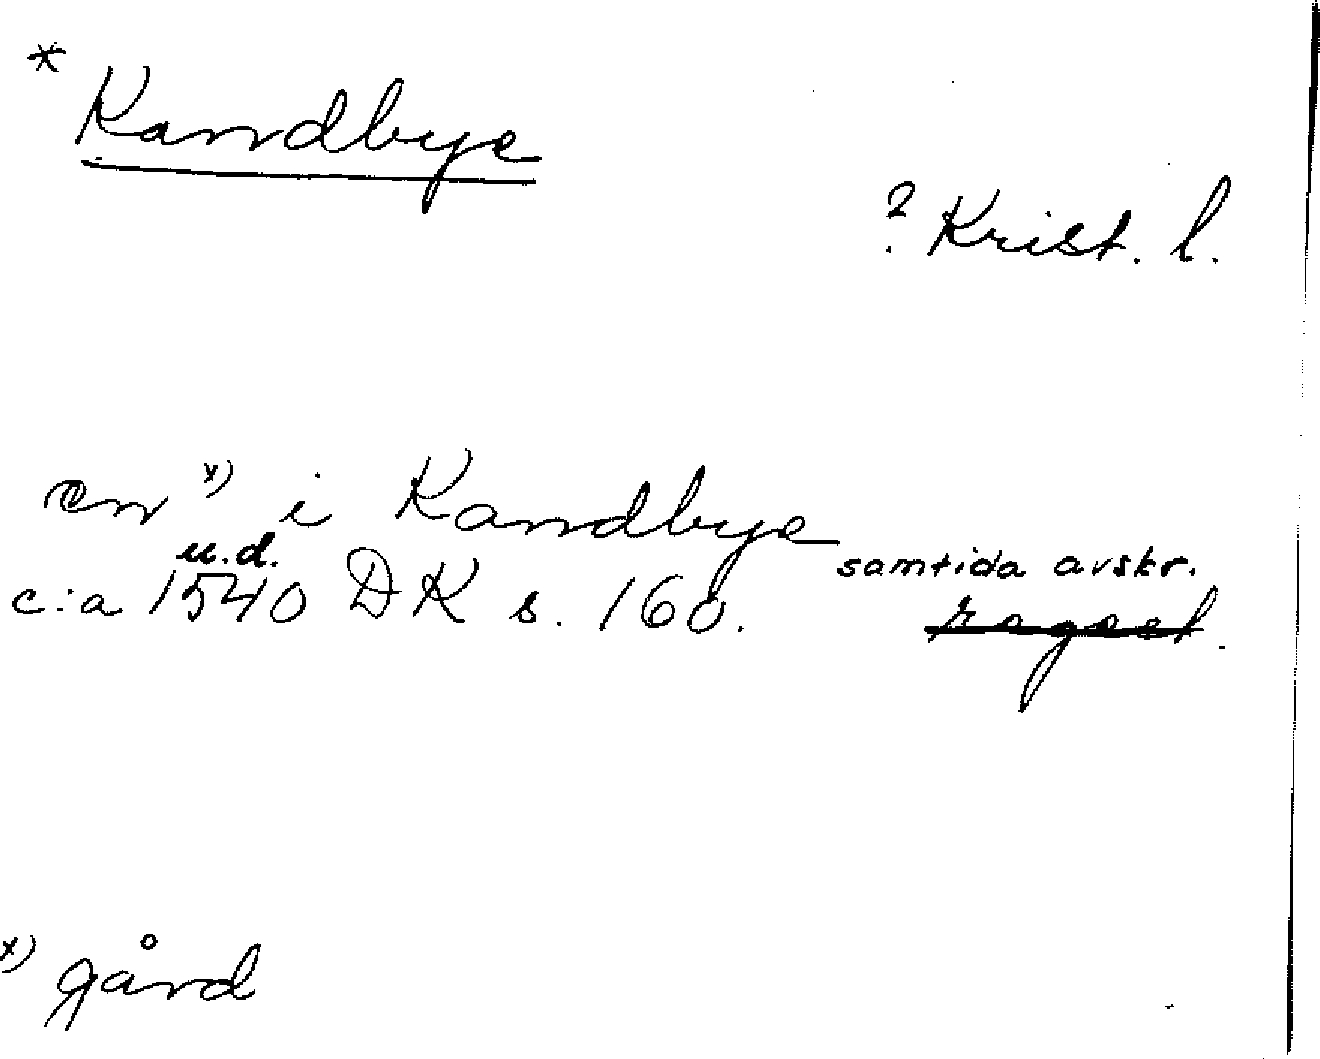 * Kandbye
? Krist. l.
en x) i Kandbye
u.d. samtida avskr.
c:a 1540 DK s. 160.
x) gård